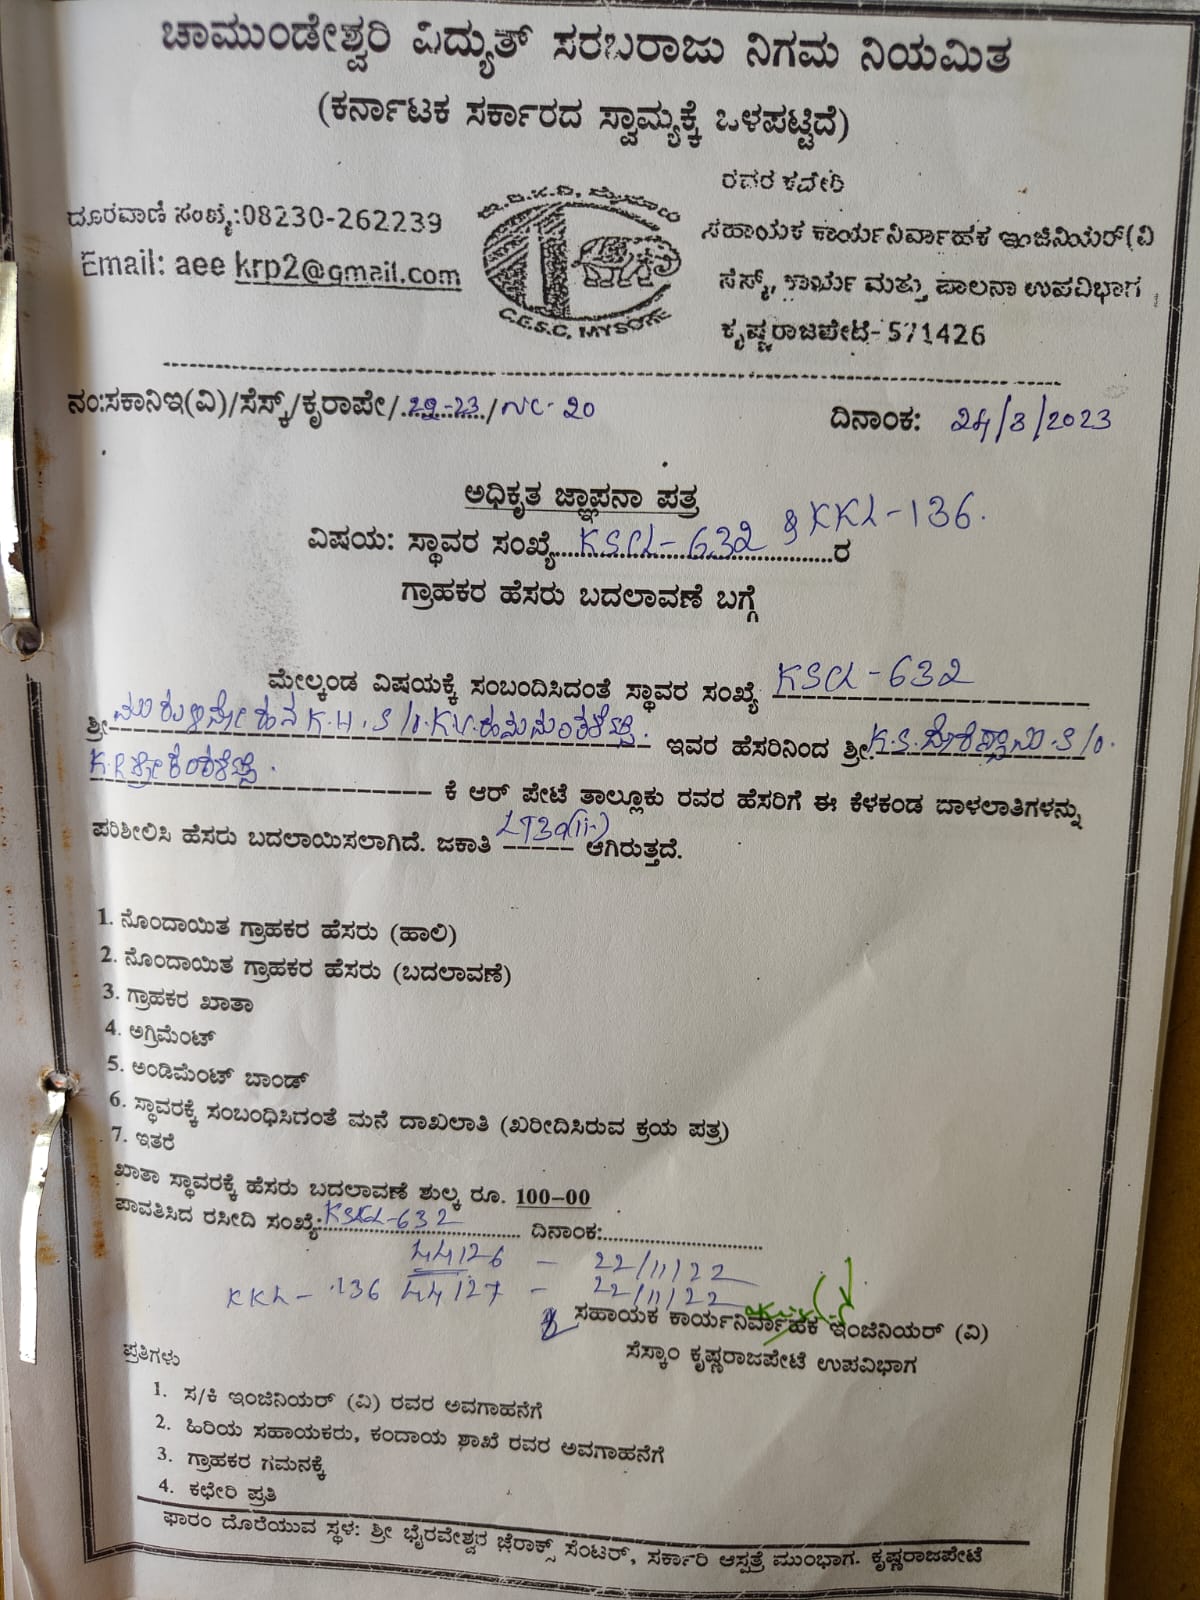 ಚಾಮುಂಡೇಶ್ವರಿ ವಿದ್ಯುತ್ ಸರಬರಾಜು ನಿಗಮ ನಿಯಮಿತ
(ಕರ್ನಾಟಕ ಸರ್ಕಾರದ ಸ್ವಾಮ್ಯಕ್ಕೆ ಒಳಪಟ್ಟಿದೆ)
ರವರ ಕಚೇರಿ
ದೂರವಾಣಿ ಸಂಖ್ಯೆ:08230-262239
ಸಹಾಯಕ ಕಾರ್ಯನಿರ್ವಾಹಕ ಇಂಜಿನಿಯರ್(ವಿ
Email: aee krp2@gmail.com
ಸೆಸ್ಕ್, ಕಾರ್ಯ ಮತ್ತು ಪಾಲನಾ ಉಪವಿಭಾಗ
C.E.S.C, MYSORE
ಕೃಷ್ಣರಾಜಪೇಟೆ-571426
ನಂ:ಸಕಾನಿಇ(ವಿ)/ಸೆಸ್ಕ್/ಕೃರಾಪೇ/.22-23./NC-20
ದಿನಾಂಕ: 24/8/2023
ಅಧಿಕೃತ ಜ್ಞಾಪನಾ ಪತ್ರ
ವಿಷಯ: ಸ್ಥಾವರ ಸಂಖ್ಯೆ....KSCL-632 & KKL-136. ....ರ
ಗ್ರಾಹಕರ ಹೆಸರು ಬದಲಾವಣೆ ಬಗ್ಗೆ
ಮೇಲ್ಕಂಡ ವಿಷಯಕ್ಕೆ ಸಂಬಂದಿಸಿದಂತೆ ಸ್ಥಾವರ ಸಂಖ್ಯೆ KSCL-632
ಶ್ರೀ K.H. S/o. K.V. ಇವರ ಹೆಸರಿನಿಂದ ಶ್ರೀ K.S. S/o.
K.R ಕೆ ಆರ್ ಪೇಟೆ ತಾಲ್ಲೂಕು ರವರ ಹೆಸರಿಗೆ ಈ ಕೆಳಕಂಡ ದಾಳಲಾತಿಗಳನ್ನು
ಪರಿಶೀಲಿಸಿ ಹೆಸರು ಬದಲಾಯಿಸಲಾಗಿದೆ. ಜಕಾತಿ LT3a(ii) ಆಗಿರುತ್ತದೆ.
1. ನೊಂದಾಯಿತ ಗ್ರಾಹಕರ ಹೆಸರು (ಹಾಲಿ)
2. ನೊಂದಾಯಿತ ಗ್ರಾಹಕರ ಹೆಸರು (ಬದಲಾವಣೆ)
3. ಗ್ರಾಹಕರ ಖಾತಾ
4. ಅಗ್ರಿಮೆಂಟ್
5. ಅಂಡಿಮೆಂಟ್ ಬಾಂಡ್
6. ಸ್ಥಾವರಕ್ಕೆ ಸಂಬಂಧಿಸಿದಂತೆ ಮನೆ ದಾಖಲಾತಿ (ಖರೀದಿಸಿರುವ ಕ್ರಯ ಪತ್ರ)
7. ಇತರೆ
ಖಾತಾ ಸ್ಥಾವರಕ್ಕೆ ಹೆಸರು ಬದಲಾವಣೆ ಶುಲ್ಕ ರೂ. 100-00
ಪಾವತಿಸಿದ ರಸೀದಿ ಸಂಖ್ಯೆ:KSCL-632 ........ ದಿನಾಂಕ:........
44126 - 22/11/22
KKL-136 44127 - 22/11/22
ಸಹಾಯಕ ಕಾರ್ಯನಿರ್ವಾಹಕ ಇಂಜಿನಿಯರ್ (ವಿ)
ಸೆಸ್ಕಾಂ ಕೃಷ್ಣರಾಜಪೇಟೆ ಉಪವಿಭಾಗ
ಪ್ರತಿಗಳು
1. ಸ/ಕಿ ಇಂಜಿನಿಯರ್ (ವಿ) ರವರ ಅವಗಾಹನೆಗೆ
2. ಹಿರಿಯ ಸಹಾಯಕರು, ಕಂದಾಯ ಶಾಖೆ ರವರ ಅವಗಾಹನೆಗೆ
3. ಗ್ರಾಹಕರ ಗಮನಕ್ಕೆ
4. ಕಛೇರಿ ಪ್ರತಿ
ಫಾರಂ ದೊರೆಯುವ ಸ್ಥಳ: ಶ್ರೀ ಭೈರವೇಶ್ವರ ಜೆರಾಕ್ಸ್ ಸೆಂಟರ್, ಸರ್ಕಾರಿ ಆಸ್ಪತ್ರೆ ಮುಂಭಾಗ. ಕೃಷ್ಣರಾಜಪೇಟೆ